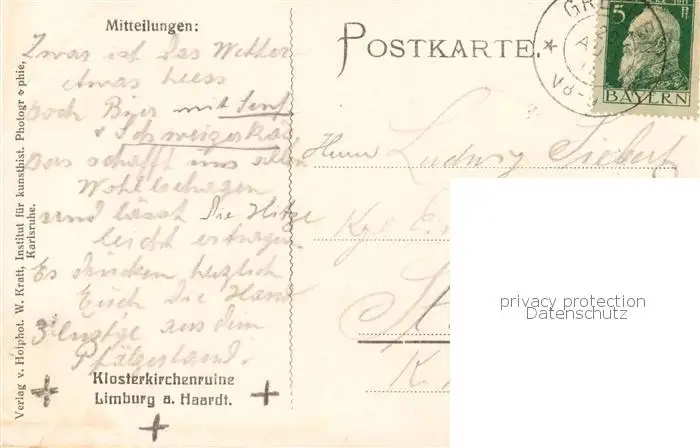 Mitteilungen:
Zwar ist das Wetter
etwas heess
doch Bier mit Senf
& Schweizerkäs,
Das schafft uns allen
Wohlbehagen
und lässt die Hitze
leicht ertragen.
Es drücken herzlich
Euch die Hand
aus dem
Pfälzerland.
Klosterkirchenruine
Limburg a. Haardt.
Verlag v. Hofphot. W. Kratt, Institut für kunsthist. Photographie,
Karlsruhe.
POSTKARTE.
GR
V8-9
5
BAYERN
Herrn Ludwig Siebert
Kgl.
St
K.
privacy protection
Datenschutz